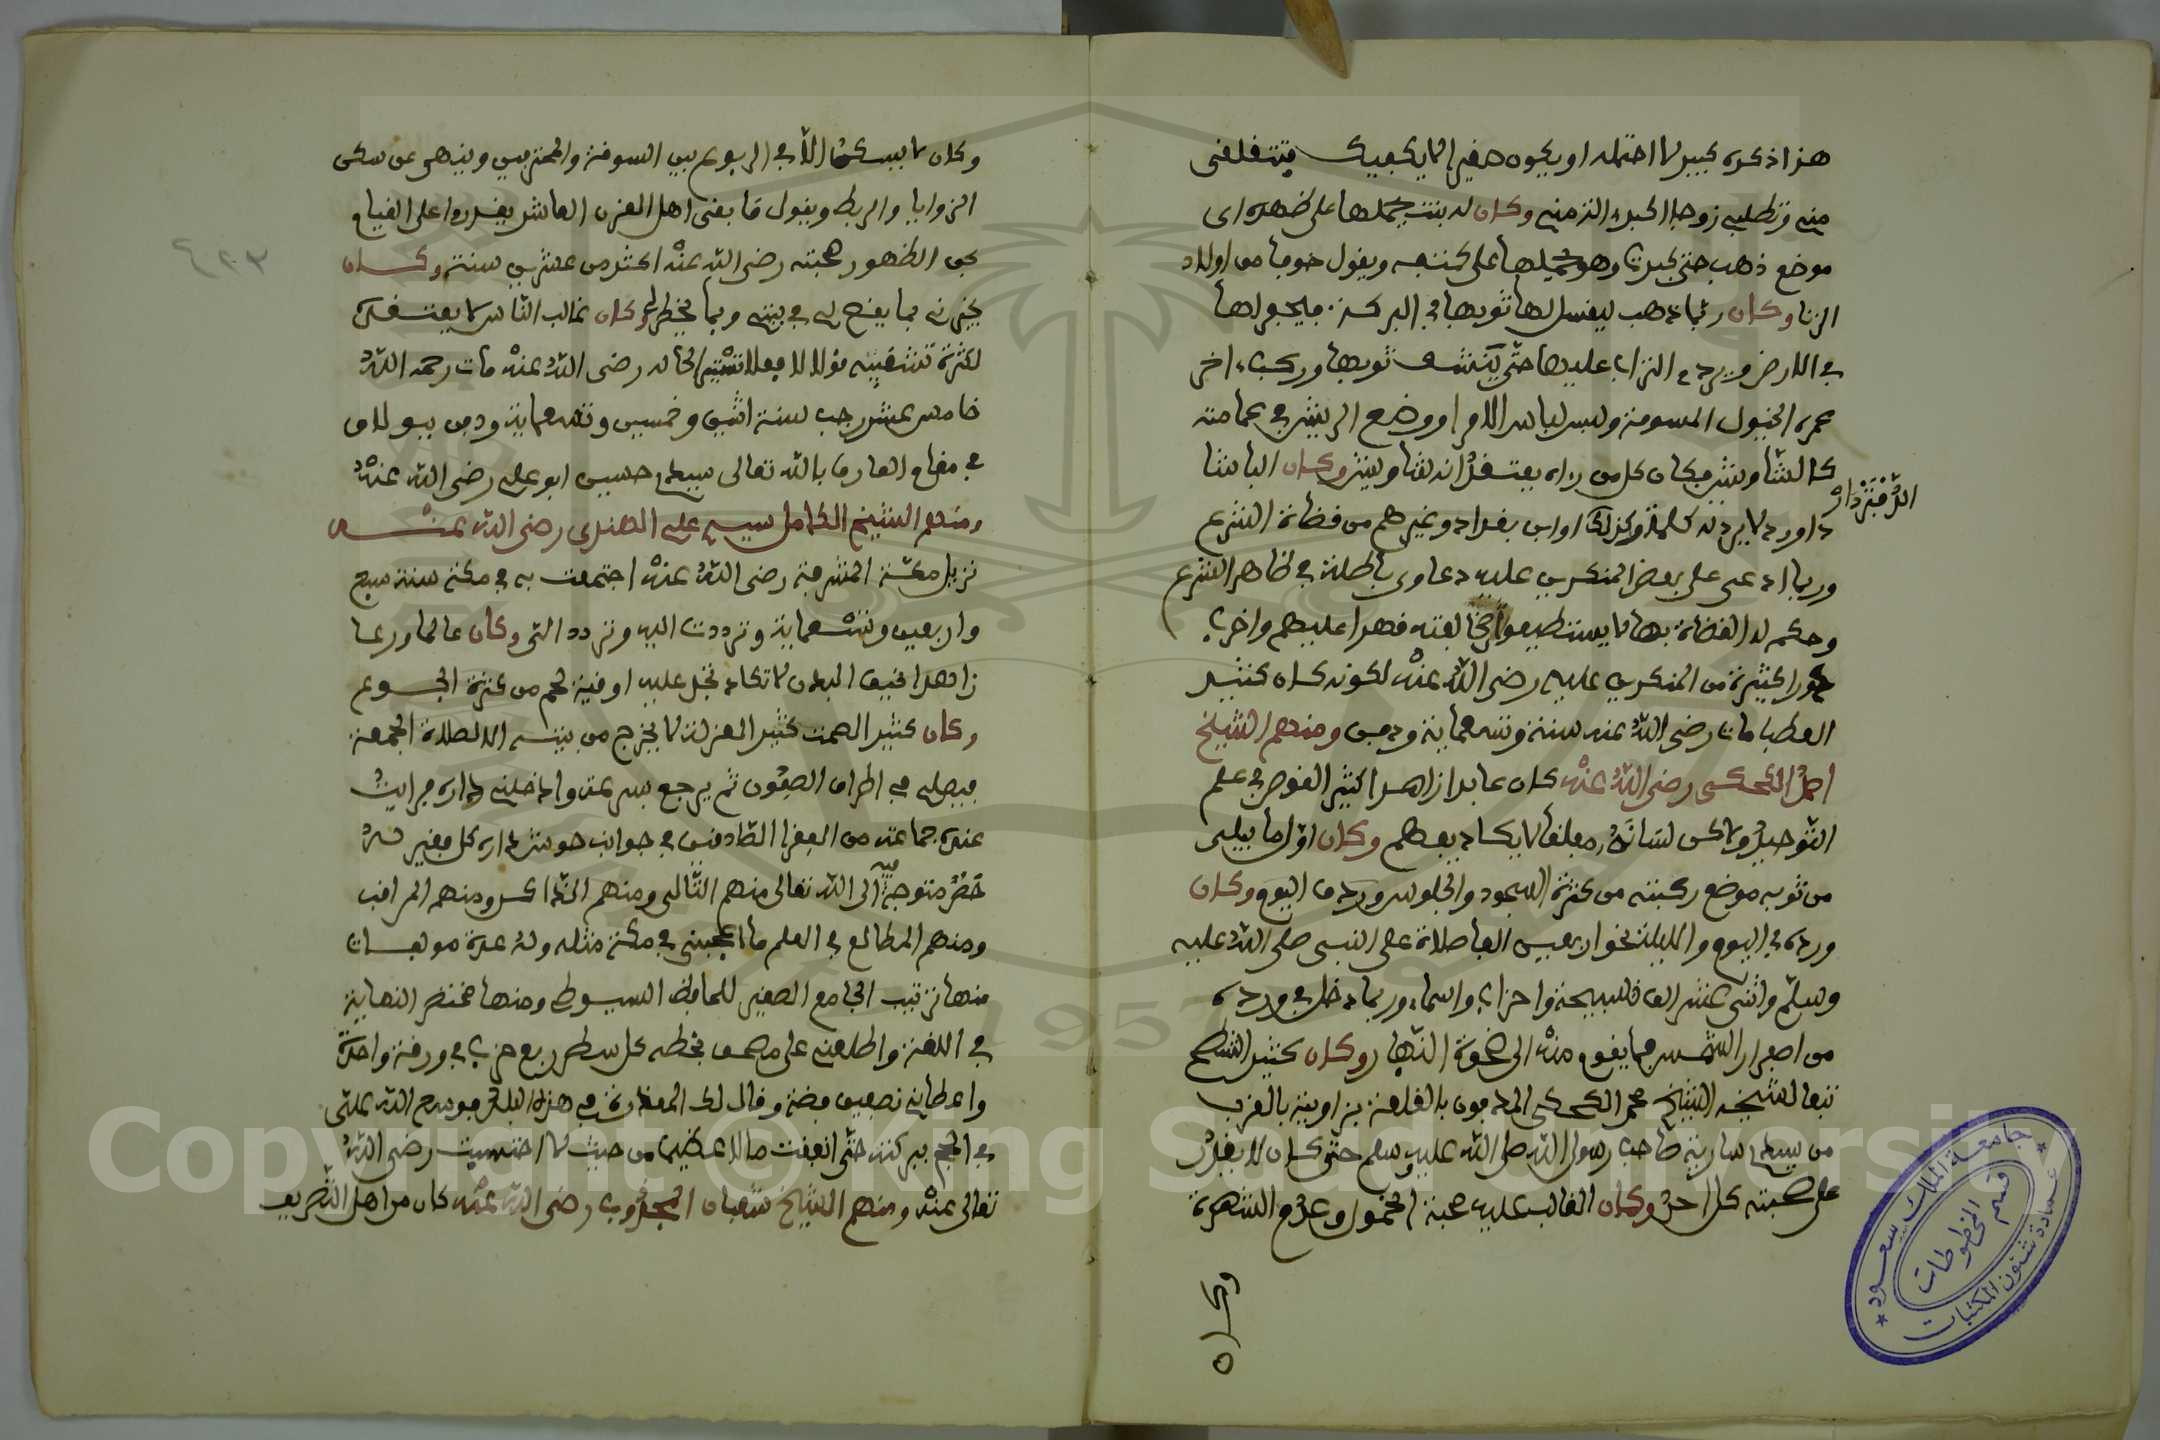 هذا ذكره كبير لا احتمله او يكون صغيرا لا يكفيك فتتقلقى
منه وتطلبى زوجا اكبر والتزمنى وكان له بنت يحملها على ظهره اى
موضع ذهب حتى كبرت وهو يحملها على كتفه ويقول خوفا من اولاد
الزنا وكان ربما ذهب ليغسل لها ثوبها فى البركة فيحفر لها
فى الارض ويردم التراب عليها حتى ينشف ثوبها وركب اخر
عمره الخيول المسومة ولبس لباس الامرا ووضع الريش فى عمامته
كالشاويش فكان كل من راه يعتقد انه شاويش وكان الباشا
الدفتردار
داود لا يرد له كلمة وكذلك اولاد بغداد وغيرهم من قضاة الشرع
وربما ادعى على بعض المنكرين عليه دعاوى باطلة فى ظاهر الشرع
وحكم له القضاة بها لا يستطيعوا مخالفته قهرا عليهم واخرب
دورا كثيرة من المنكرين عليه رضى الله عنه لكونه كان كثير
العطب مات رضى الله عنه سنة وتسعماية ودفن ومنهم الشيخ
احمد الكعكى رضى الله عنه كان عابدا زاهدا كثير الغوص فى علم
التوحيد ولاكن لسانه مغلقا لا يكاد يفهم وكان اول ما يبلى
من ثوبه موضع ركبته من كثرة السجود والجلوس وردف اليوم وكان
ورده فى اليوم والليلة نحو اربعين الفا صلاة على النبى صلى الله عليه
وسلم واثنى عشر الف تسبيحة واحزاب واسماء وربما دخل فى ورده
من اصفرار الشمس فما يقوم منه الى ضحوة النهار وكان كثير الشطح
تبعا لشيخه الشيخ عمر الكعكى المدفون بالقلعة بزاويته بالقرب
من سيدى سارية صاحب رسول الله صلى الله عليه وسلم حتى كان لا يقدر
على صحبته كل احد وكان الغالب عليه محبة الخمول وعدم الشهرة
وكان
وكان لا يسكن الا فى الربوع بين السوقة والمحترفين وينهى عن سكنى
الزوايا والربط ويقول ما بقى اهل القرن العاشر يقدروا على القيام
بحق الظهور صحبته رضى الله عنه اكثر من عشرين سنة وكان
يخبرنى بما يقع لى فى بيتى وبما يخطر لى وكان غالب الناس لا يعتقده
لكثرة تشعيثه قولا لا فعلا تستيرا لحاله رضى الله عنه مات رحمه الله
خامس عشر رجب سنة اثنين وخمسين وتسعماية ودفن ببولاق
فى مقام العارف بالله تعالى سيدى حسين ابو على رضى الله عنه
ومنهم الشيخ الكامل سيدى على الهندى رضى الله عنه
نزيل مكة المشرفة رضى الله عنه اجتمعت به فى مكة سنة سبع
واربعين وتسعماية وترددت اليه وتردد الى وكان عالما ورعا
زاهدا نحيف البدن لا تكاد تجد عليه اوقية لحم من كثرة الجوع
وكان كثير الصمت كثير العزلة لا يخرج من بيته الا لصلاة الجمعة
فيصلى فى اطراف الصفوف ثم يرجع بسرعة وادخلنى داره فرايت
عنده جماعة من الفقرا الصادقين فى جوانب حوش داره كل فقير له
خص متوجه فيه الى الله تعالى منهم التالى ومنهم الذاكر ومنهم المراقب
ومنهم المطالع فى العلم ما اعجبنى فى مكة مثله وله عدة مولفات
منها ترتيب الجامع الصغير للحافظ السيوطى ومنها مختصر النهاية
فى اللغة واطلعنى على مصحف بخطه كل سطر ربع حزب فى ورقة واحدة
واعطانى نصفين فضة وقال لك المعذرة فى هذه البلد فوسع الله على
فى الحج ببركته حتى انفقت مالا عظيما من حيث لا احتسب رضى الله
تعالى عنه ومنهم الشيخ شعبان المجذوب رضى الله عنه كان من اهل التصريف
٤٢٣
جامعة الملك سعود
عمادة شئون المكتبات
قسم المخطوطات
1957
Copyright © King Saud University